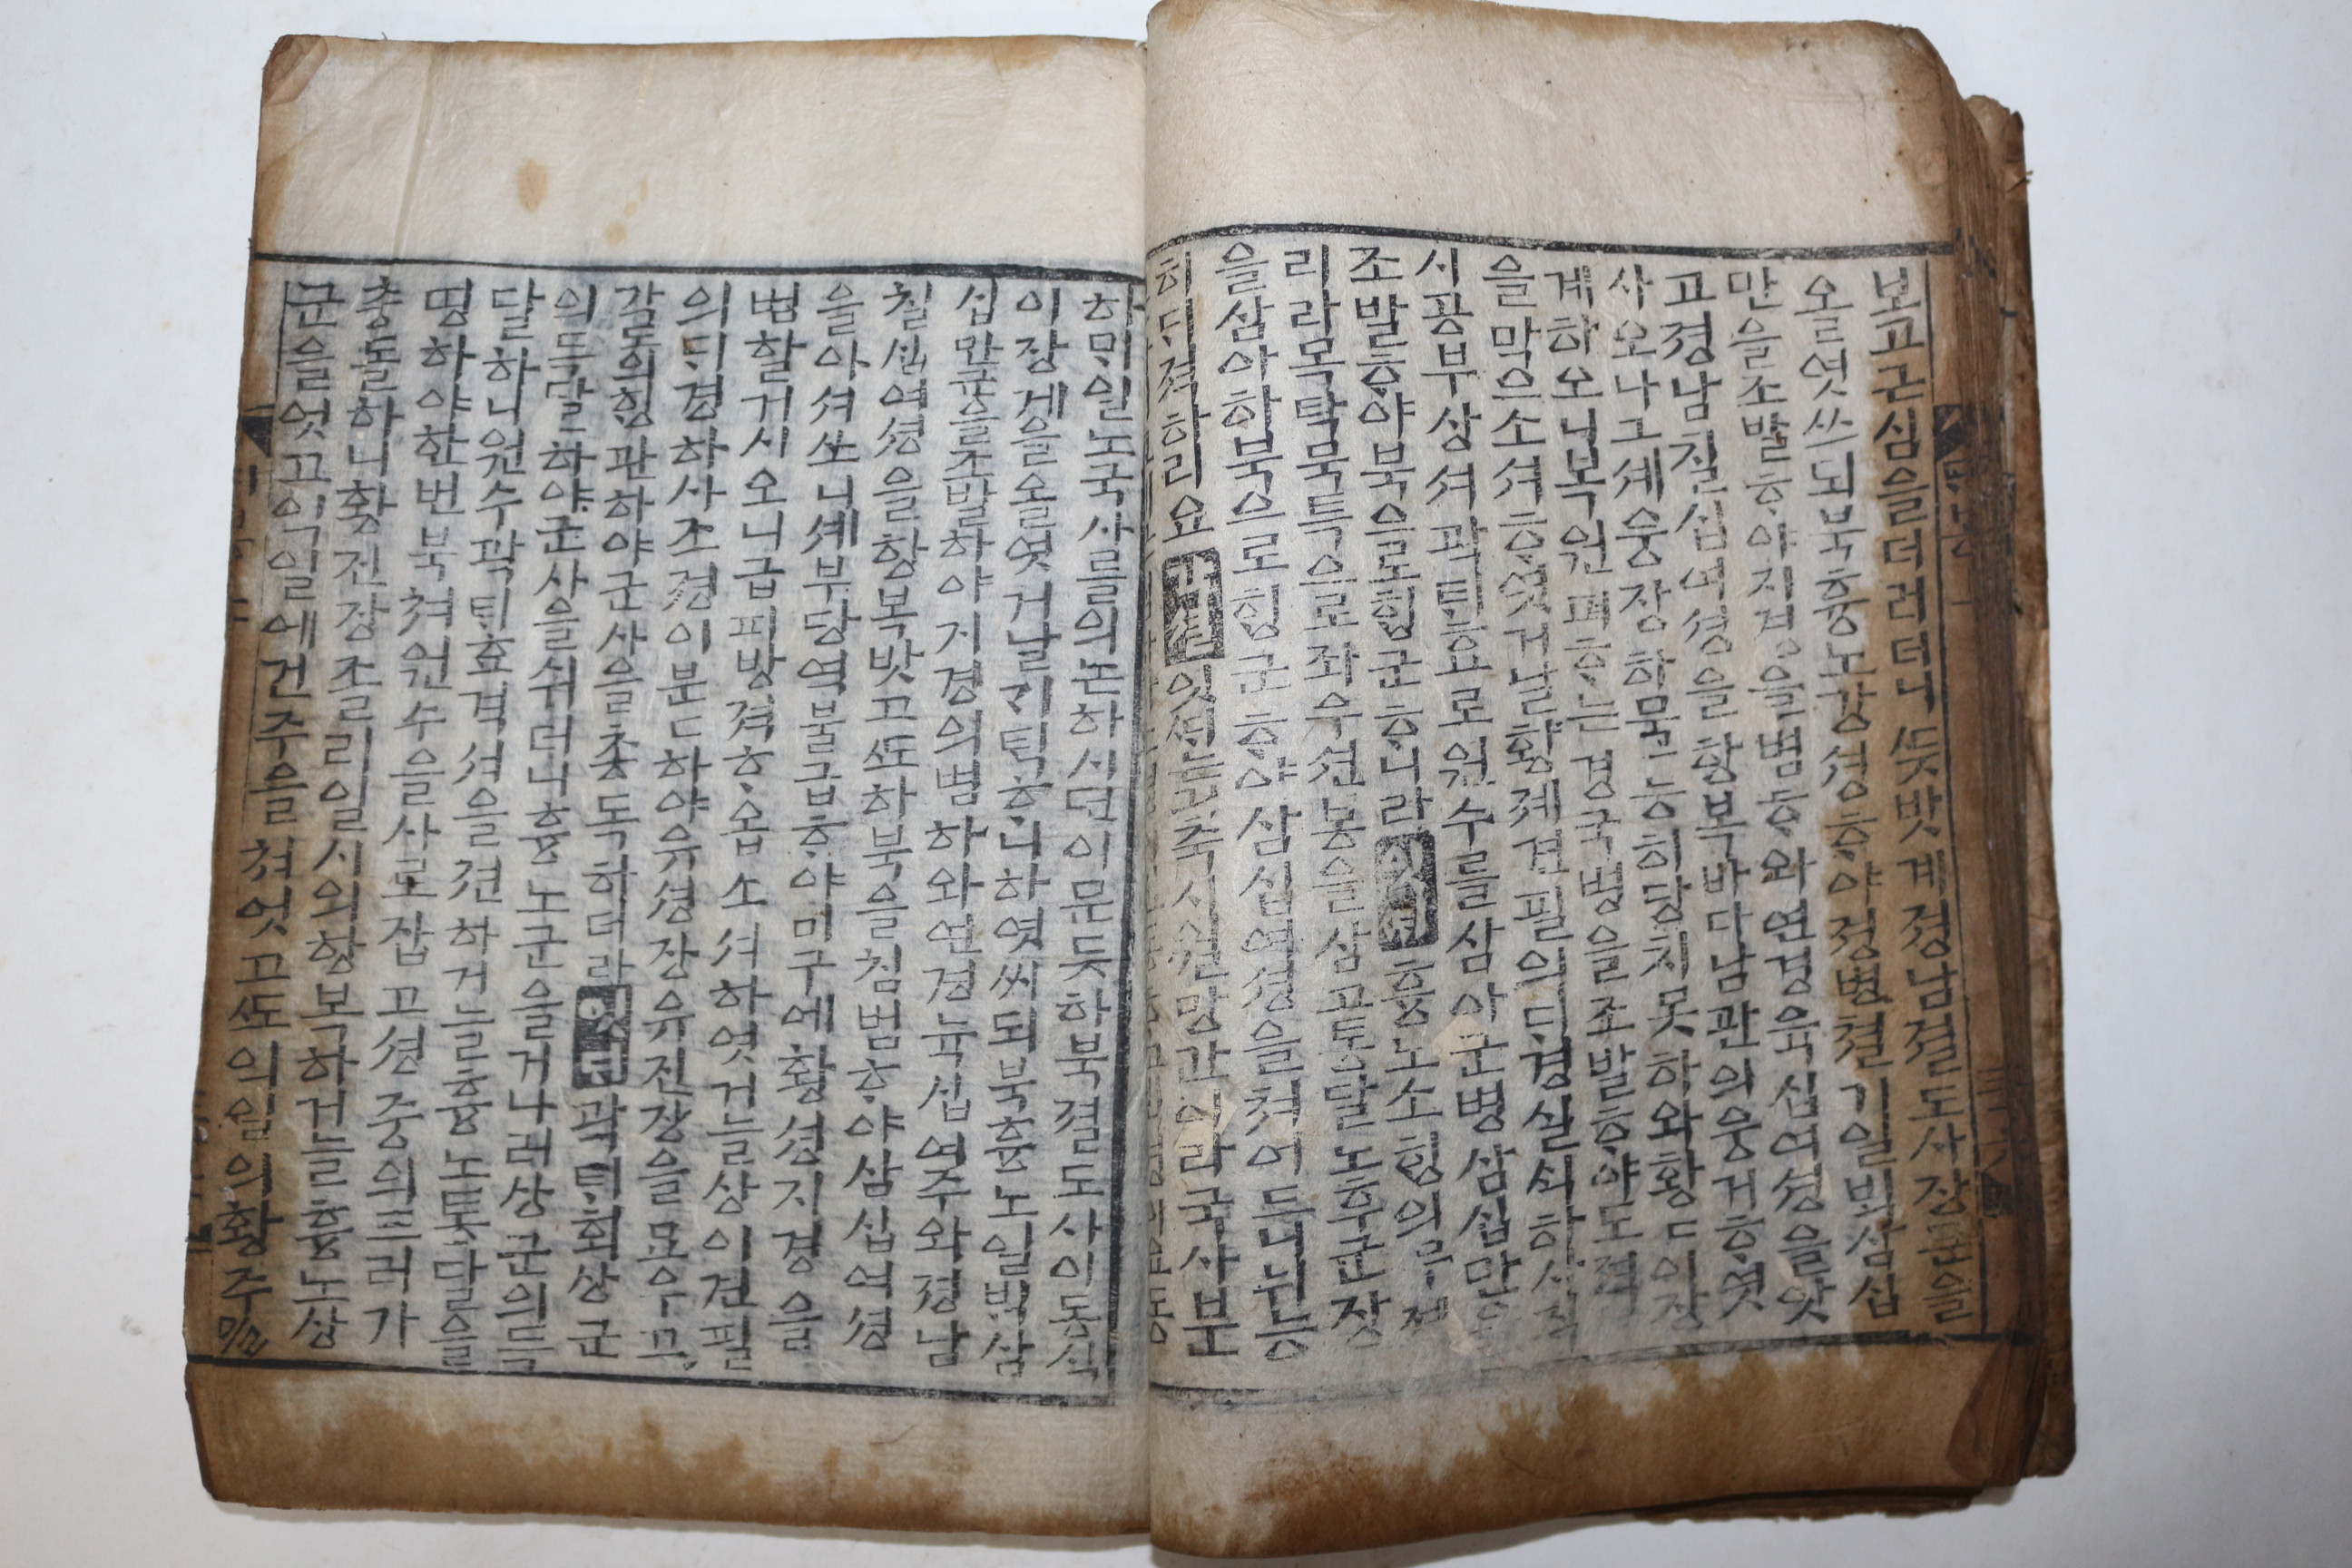 보고근심을더러더니ᄯᅳᆺ밧계졍남졀도사장문을
오을엿쓰되북흉노강셩ᄒᆞ야졍병쳘기일ᄇᆡᆨ삼십
만을조발ᄒᆞ야지경을범ᄒᆞ와연경육십여셩을앗
고졍남칠십여셩을항복바다남관의웅거ᄒᆞ엿
사오나그셰웅장하믈능히당치못하와황ᄃᆡ장
계하오니복원폐ᄒᆞ는경국병을조발ᄒᆞ야도젹
을막으소셔ᄒᆞ엿거날황졔견필의ᄃᆡ경실ᄉᆡᆨ하사
시공부상셔곽ᄐᆡᄒᆞ요로원수를삼아군병삼십만
조발ᄒᆞ야북을로ᄒᆡᆼ군ᄒᆞ니라 흉노소ᄒᆡᆼ의
리라목탁묵특으로좌우션봉을삼고통달노후군장
을삼아하북으로ᄒᆡᆼ군ᄒᆞ야삼십여셩을쳐어드니뉘능
히ᄃᆡ젹하리요 잇ᄯᆡ 츅시원망과이라국사분
하ᄆᆡ일노국사를의논하시던이문듯하북졀도사이동식
이장게을올엿거날ᄀᆡᄐᆡᆨᄒᆞ니하엿씨되북흉노일ᄇᆡᆨ삼
십만군을조발하야지경의범하와연경뉵십여주와졍남
칠십여셩을항복밧고ᄯᅩ하북을침범ᄒᆞ야삼십여셩
을아셔쓰니셰부당역불급ᄒᆞ야미구에황셩지경을
범할거시오니급피방젹ᄒᆞ옵소셔하엿거늘상이견필
의ᄃᆡ경하사조졍이분ᄃᆞ하야유셩장유진장을묘우고
감동의ᄒᆡᆼ관하야군사을총독하더라 잇ᄯᆡ 곽ᄐᆡ회상군
의득달하야군사을쉬러니흉노군을거나려상군의득
달하니원수곽ᄐᆡ효격셔을젼하거늘흉노통달을
명하야한번북쳐원수을사로잡고셩중의드러가
충돌하니황진장졸리일시의항복하거늘흉노상
군을엇고익일에건주을쳐엇고ᄯᅩ의일의황주